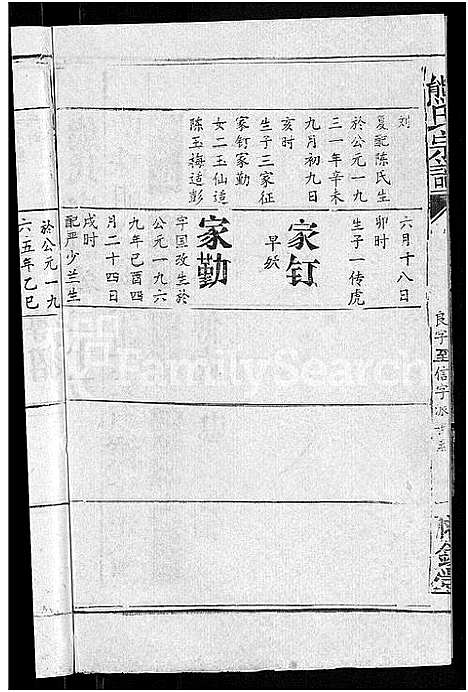 熊氏宗譜
良字至信字派
刘
夏配陈氏生
於公元一九
三一年辛未
九月初九日
亥时
生子三家征
家钉家勤
女二玉仙适
陈玉梅适彭
六月十八日
卯时
生子一传虎
家钉
早殁
家勤
字国改生於
公元一九六
九年己酉四
月二十四日
戌时
配严少兰生
於公元一九
六五年乙巳
FamilySearch